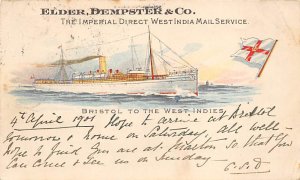 ELDER, DEMPSTER & CO.
THE IMPERIAL DIRECT WEST INDIA MAIL SERVICE.
BRISTOL TO THE WEST INDIES
4th April 1901 Hope to arrive at Bristol
tomorrow & home on Saturday, all well -
hope to find you are at so that you
can come & see us on Sunday -